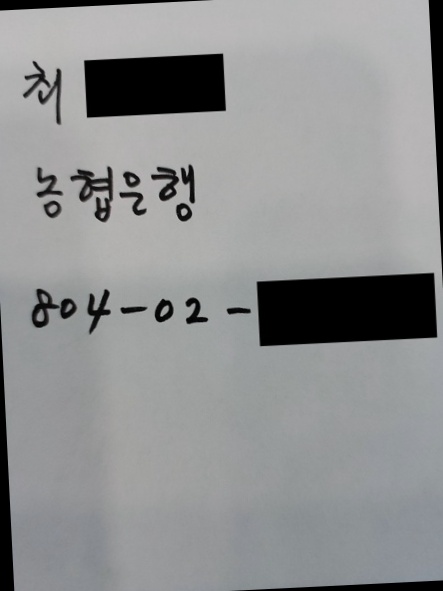 최
농협은행
804-02-